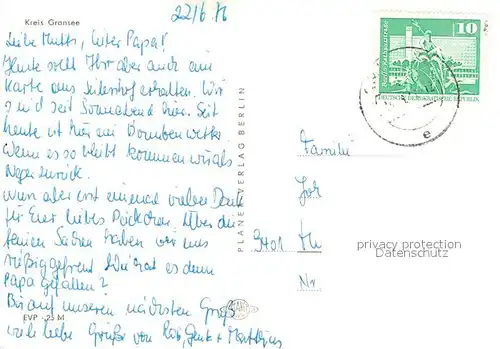 Kreis Gransee
22/6 76
Liebe Mutti, lieber Papa!
Heute sollt Ihr aber auch eine
Karte aus erhalten. Wir
sind seit Sonnabend hier. Seit
heute ist hier ein Bombenwetter.
Wenn es so bleibt kommen wir als
Neger zurück.
Nun aber erst einmal vielen Dank
für Euer liebes Päckchen. Über die
feinen Sachen haben wir uns
riesig gefreut. Wie hat es denn
Papa gefallen?
Bis auf unseren nächsten Gruß
viele liebe Grüße von + Matthias
EVP -,25 M
PLANET-VERLAG BERLIN
10
DEUTSCHE DEMOKRATISCHE REPUBLIK
e
Familie
9401
privacy protection
Datenschutz